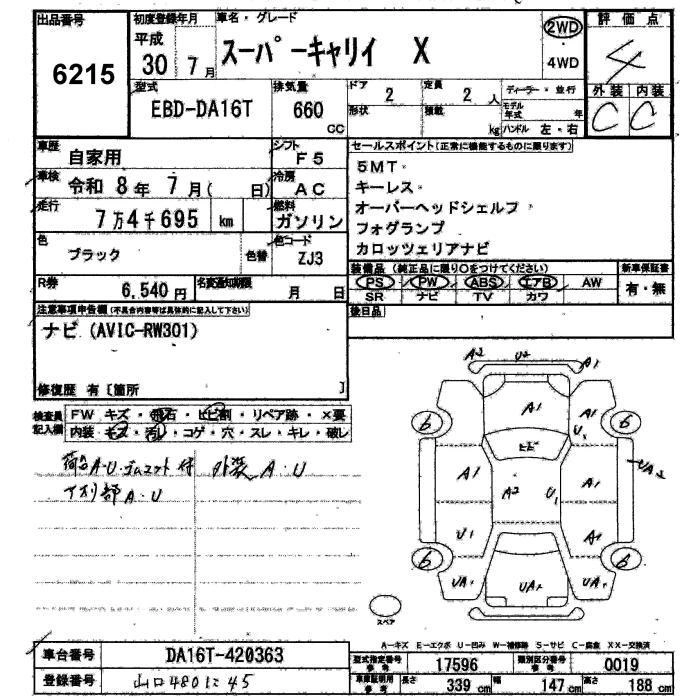 出品番号
6215
初度登録年月
平成
30年 7月
車名・グレード
スーパーキャリイ X
2WD
4WD
評価点
4
外装 内装
C C
型式
EBD-DA16T
排気量
660
CC
ドア
2
定員
2 人
形状
積載
kg
ディーラー・並行
モデル年式 年
ハンドル 左・右
車歴
自家用
シフト
F5
車検
令和 8年 7月( 日)
冷房
AC
走行
7万4千695 km
燃料
ガソリン
色
ブラック
色替
色コード
ZJ3
R券
6,540 円
名変通知期限
月 日
セールスポイント(正常に機能するものに限ります)
5MT・
キーレス・
オーバーヘッドシェルフ
フォグランプ
カロッツェリアナビ
装備品 (純正品に限り○をつけてください)
PS PW ABS エアB AW
SR ナビ TV カワ
新車保証書
有・無
後日品
注意事項申告欄(不具合内容等は具体的に記入して下さい)
ナビ (AVIC-RW301)
修復歴 有〔箇所 〕
検査員記入欄
FW キズ・飛石・ヒビ割・リペア跡・×要
内装・キズ・汚れ・コゲ・穴・スレ・キレ・破レ
荷台A・U・ゴムマット付 外装 A・U
下廻部 A・U
A2 U2 A1
6 A1 6
U1
ヒビ
A1 A2 U1 A1 UA2
U1 A1
6 6
UA1 UA1 UA1
スペア
A-キズ E-エクボ U-凹み W-補修跡 S-サビ C-腐食 XX-交換済
車台番号
DA16T-420363
登録番号
山口480に45
型式指定番号
参考
17596
類別区分番号
参考
0019
車庫証明用
参考
長さ 339 cm 幅 147 cm 高さ 188 cm